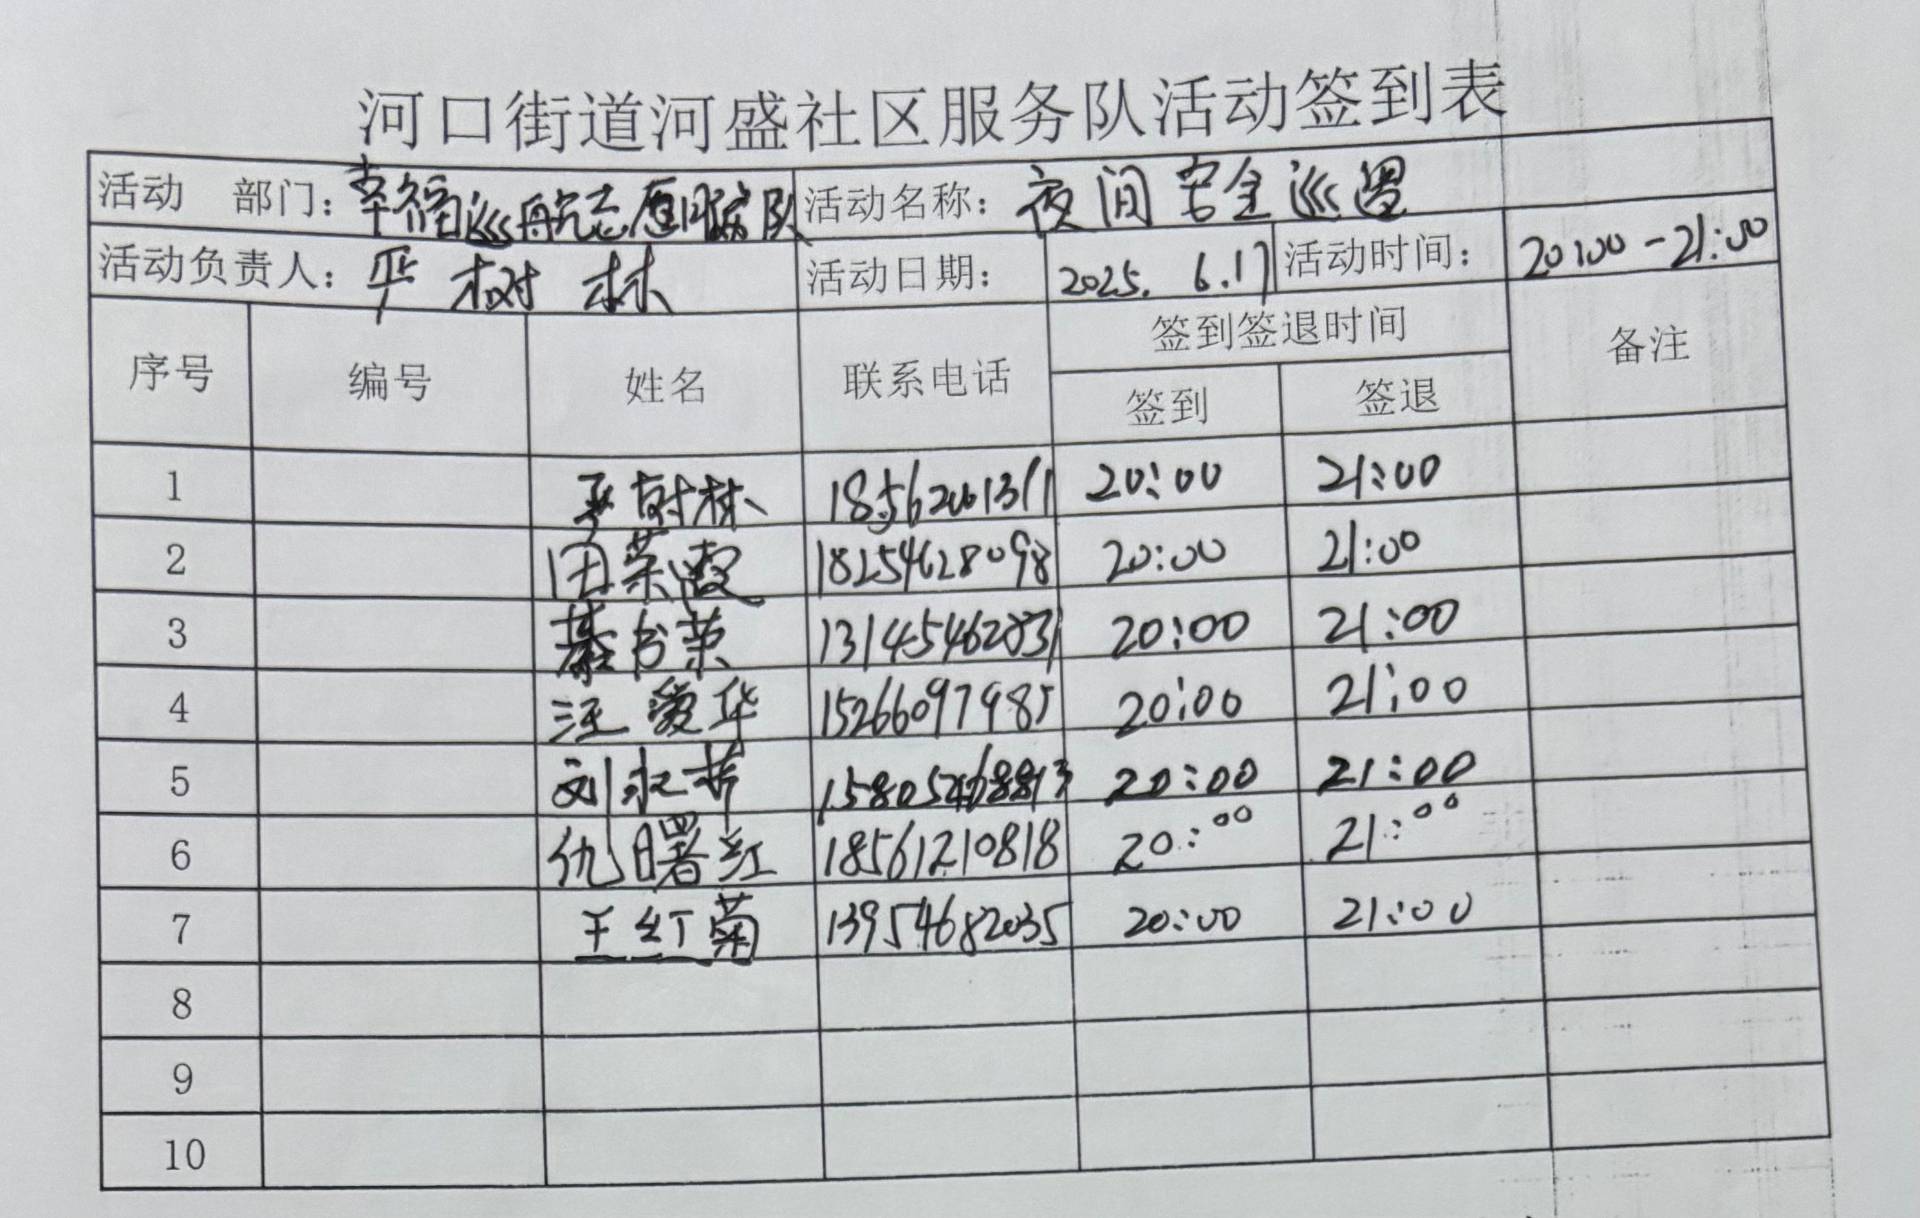 河口街道河盛社区服务队活动签到表
活动 部门：幸福巡航志愿服务队 活动名称：夜间安全巡逻
活动负责人：严树林 活动日期：2025. 6.17 活动时间：20:00-21:00
序号 编号 姓名 联系电话 签到签退时间 备注
签到 签退
1 严树林 18562001311 20:00 21:00
2 田荣霞 18254628098 20:00 21:00
3 綦书荣 13145462831 20:00 21:00
4 汪爱华 15266097985 20:00 21:00
5 刘永芹 15805468813 20:00 21:00
6 仇曙红 18561210818 20:00 21:00
7 王红菊 13954682035 20:00 21:00
8
9
10